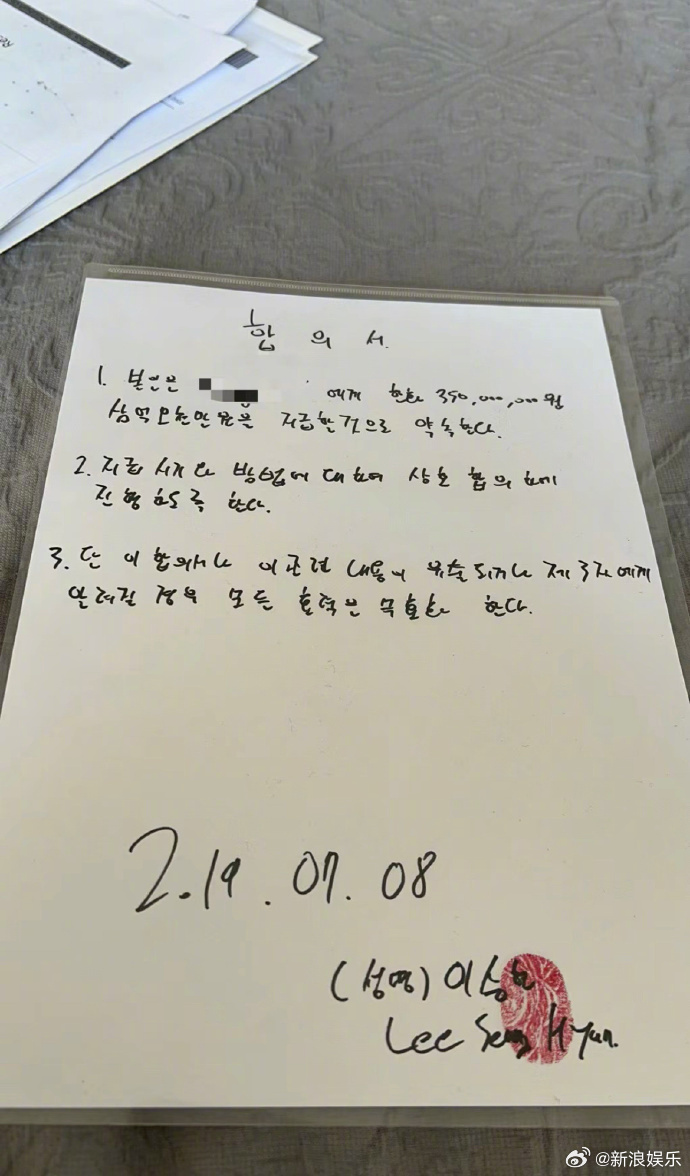 합 의 서.
1. 본인은 에게 한화 350,000,000원
삼억오천만원을 지급할것으로 약속한다.
2. 지급 시기나 방법에 대하여 상호 합의하에
진행하도록 한다.
3. 단 이 합의서나 이 관련 내용이 유출되거나 제 3자에게
알려질 경우 모든 효력은 무효화 한다.
2.19.07.08
(성명) 이승현
Lee Seung Hyun.
@新浪娱乐